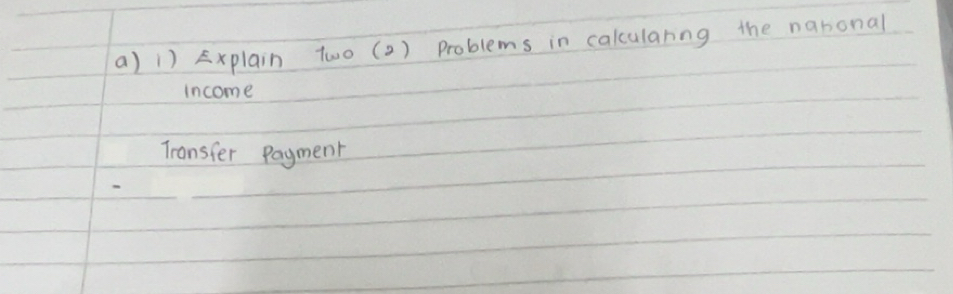 a) i) Explain Two (2) Problems in calculating the national
income
Transfer Payment
-